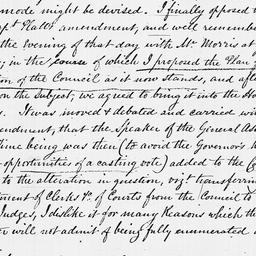 mode might be devised. I finally opposed t
Platt's amendment, and well remember
the Evening of that day with Mr. Morris at
; in the course of which I proposed the Plan of
tion of the Council as it now stands, and aft
on the Subject, we agreed to bring it into the Ho
. It was moved & debated and carried with
endment, that the Speaker of the General Ass
time being was then (to avoid the Governor's h
opportunities of a casting vote) added to the C
to the alteration in question, viz.t transferrin
tment of Clerks &c. of Courts from the Council to
Judges, I dislike it for many Reasons which th
will not admit of being fully enumerated a